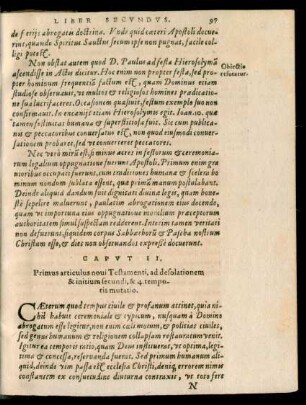 LIBER SECUNDUS. 97
de f eriis abrogatis doctrina. Unde quid cæteri Apostoli docue-
rint, quando Spiritus Sanctus secum ipse non pugnat, facile col-
ligi potest.
Non obstat autem quod D. Paulus ad festa Hierosolymā
ascendisse in Actis dicitur. Hoc enim non propter festa, sed pro-
pter hominum frequentiā factum est. Quomodo Dominū etiam
studiose observamus, ut multos & religiosos homines prædicatio-
ne sua lucrifaceret. Occasionem quæsivit, festum exemplo suo non
confirmavit. Is encænia Hierosolymis egit. Ioan.
tamen solennitas humana & superstitiosa fuit. Sic cum publica-
nis & peccatoribus conversatus est, non quod eorum
probaret, sed ut converteret peccatores.
Obiectio
refutatur.
Nec verò mirū est, si minus acres in festorum & ceremonia-
rum legalium oppugnatione fuerunt Apostoli. Primum enim gra-
vioribus occupati, cum traditiones humanæ & scelera ho
minum nondum sublata essent, quæ primā manum postulabant.
Deinde aliquid dandum fuit dignitati divinæ legis, quam hone-
stè sepelire maluerunt, paulatim abrogationem eius docendo,
quam ut importuna eius oppugnatione novitium præceptorum
authoritatem simul suspectam redderent. Interim tamen veritati
non defuerunt, siquidem corpus Sabbathorū & Pascha nostrum
Christum esse, & dies non observandos expressè docuerunt.
CAPUT II.
Primus articulus noui Testamenti, ad desolationem
& initium secundi, & 4. tempo-
ris mutatio.
CÆterum quod tempus civile & profanum attinet, quia ni-
hil habuit ceremoniale & typicum, nusquam à Domino
abrogatum esse legitur, non enim cœli motum, & politias civiles,
sed genus humanum & religionem collapsam restauratum venit.
Igitur ea temporis ratio, quam Deus instituerat, ut optima, legi-
tima & concessa, reservanda fuerat. Sed primum humanum ali-
quid, deinde vim passa est ecclesia Christi, deniq, errorem nimis
constantem ex consuetudine diuturna contraxit, ut toto ferè
N